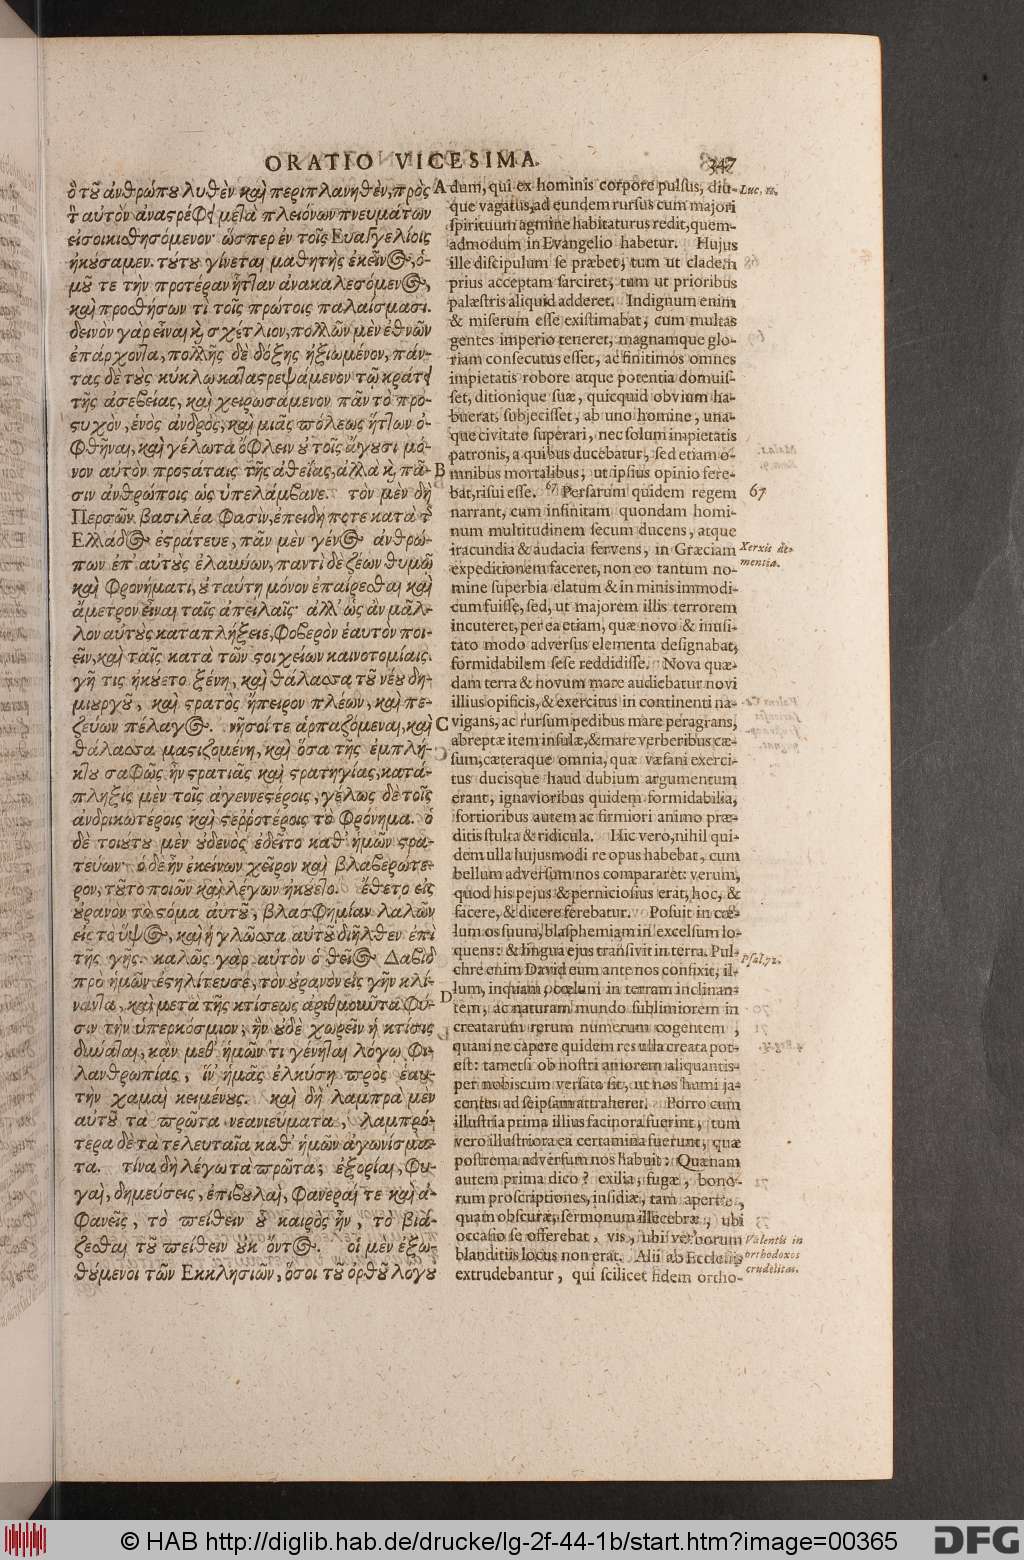 ORATIO VICESIMA.
347
ὃ τοῦ ἀνθρώπου λυθὲν καὶ περιπλανηθὲν, πρὸς
τὸ αὐτὸν ἀναστρέφει μετὰ πλειόνων πνευμάτων
εἰσοικισθησόμενον· ὥσπερ ἐν τοῖς Εὐαγγελίοις
ἠκούσαμεν. τούτου γίνεται μαθητὴς ἐκεῖνος, ὁ-
μοῦ τε τὴν προτέραν ἧτταν ἀνακαλεσόμενος,
καὶ προσθήσων τι τοῖς πρώτοις παλαίσμασι.
δεινὸν γὰρ εἶναι καὶ σχέτλιον, πολλῶν μὲν ἐθνῶν
ἐπάρχοντα, πολλῆς δὲ δόξης ἠξιωμένον, πάν-
τας δὲ τοὺς κύκλῳ καταστρεψάμενον τῷ κράτει
τῆς ἀσεβείας, καὶ χειρωσάμενον πᾶν τὸ προ-
στυχὸν, ἑνὸς ἀνδρὸς, καὶ μιᾶς πόλεως ἥττων ὀ-
φθῆναι, καὶ γέλωτα ὄφλειν οὐ τοῖς ἄγουσι μό-
νον αὐτὸν προστάταις τῆς ἀθεΐας, ἀλλὰ καὶ πᾶ-
σιν ἀνθρώποις ὡς ὑπελάμβανε. τὸν μὲν δὴ
Περσῶν βασιλέα φασὶν, ἐπειδή ποτε κατὰ τῆς
Ἑλλάδος ἐστράτευε, πᾶν μὲν γένος ἀνθρώ-
πων ἐπ' αὐτοὺς ἐλαύνων, παντὶ δὲ ζέων θυμῷ
καὶ φρονήματι, οὐ ταύτῃ μόνον ἐπαίρεσθαι καὶ
ἄμετρον εἶναι ταῖς ἀπειλαῖς· ἀλλ' ὡς ἂν μᾶλ-
λον αὐτοὺς καταπλήξειε, φοβερὸν ἑαυτὸν ποι-
εῖν, καὶ ταῖς κατὰ τῶν στοιχείων καινοτομίαις.
γῆ τις ἠκούετο ξένη, καὶ θάλασσα τοῦ νέου δη-
μιουργοῦ, καὶ στρατὸς ἤπειρον πλέων, καὶ πε-
ζεύων πέλαγος. νῆσοί τε ἁρπαζόμεναι, καὶ
θάλασσα μαστιζομένη, καὶ ὅσα τῆς ἐμπλή-
κτου σαφῶς ἦν στρατιᾶς καὶ στρατηγίας, κατά-
πληξις μὲν τοῖς ἀγεννεστέροις, γέλως δὲ τοῖς
ἀνδρικωτέροις καὶ στερροτέροις τὸ φρόνημα. ὁ
δὲ τοιούτου μὲν οὐδενὸς ἐδεῖτο καθ' ἡμῶν στρα-
τεύων· ὁ δὲ ἦν ἐκείνων χεῖρον καὶ βλαβερώτε-
ρον, τοῦτο ποιῶν καὶ λέγων ἠκούετο. ἔθετο εἰς
οὐρανὸν τὸ στόμα αὐτοῦ, βλασφημίαν λαλῶν
εἰς τὸ ὕψος, καὶ ἡ γλῶσσα αὐτοῦ διῆλθεν ἐπὶ
τῆς γῆς. καλῶς γὰρ αὐτὸν ὁ θεῖος Δαβὶδ
πρὸ ἡμῶν ἐστηλίτευσε, τὸν οὐρανὸν εἰς γῆν κλί-
ναντα, καὶ μετὰ τῆς κτίσεως ἀριθμοῦντα φύ-
σιν τὴν ὑπερκόσμιον, ἣν οὐδὲ χωρεῖν ἡ κτίσις
δύναται, κἂν μεθ' ἡμῶν τι γένηται λόγῳ φι-
λανθρωπίας, ἵν' ἡμᾶς ἑλκύσῃ πρὸς ἑαυ-
τὴν χαμαὶ κειμένους. καὶ δὴ λαμπρὰ μὲν
αὐτοῦ τὰ πρῶτα νεανιεύματα, λαμπρό-
τερα δὲ τὰ τελευταῖα καθ' ἡμῶν ἀγωνίσμα-
τα. τίνα δὴ λέγω τὰ πρῶτα; ἐξορίαι, φυ-
γαὶ, δημεύσεις, ἐπιβουλαὶ, φανεραί τε καὶ ἀ-
φανεῖς, τὸ πείθειν οὗ καιρὸς ἦν, τὸ βιά-
ζεσθαι τοῦ πείθειν οὐκ ὄντος. οἱ μὲν ἐξω-
θούμενοι τῶν Ἐκκλησιῶν, ὅσοι τοῦ ὀρθοῦ λόγου
A
B
C
D
dum, qui ex hominis corpore pulsus, diu-
que vagatus, ad eundem rursus cum majori
spirituum agmine habitaturus redit, quem-
admodum in Evangelio habetur. Hujus
ille discipulum se præbet, tum ut cladem
prius acceptam sarciret, tum ut prioribus
palæstris aliquid adderet. Indignum enim
& miserum esse existimabat, cum multas
gentes imperio teneret, magnamque glo-
riam consecutus esset, ac finitimos omnes
impietatis robore atque potentia domuis-
set, ditionique suæ, quicquid obvium ha-
buerat, subjecisset, ab uno homine, una-
que civitate superari, nec solum impietatis
patronis, a quibus ducebatur, sed etiam o-
mnibus mortalibus, ut ipsius opinio fere-
bat, risui esse. 67 Persarum quidem regem
narrant, cum infinitam quondam homi-
num multitudinem secum ducens, atque
iracundia & audacia fervens, in Græciam
expeditionem faceret, non eo tantum no-
mine superbia elatum & in minis immodi-
cum fuisse, sed, ut majorem illis terrorem
incuteret, per ea etiam, quæ novo & inusi-
tato modo adversus elementa designabat,
formidabilem sese reddidisse. Nova quæ-
dam terra & novum mare audiebatur novi
illius opificis, & exercitus in continenti na-
vigans, ac rursum pedibus mare peragrans,
abreptæ item insulæ, & mare verberibus cæ-
sum, cæteraque omnia, quæ væsani exerci-
tus ducisque haud dubium argumentum
erant, ignavioribus quidem formidabilia,
fortioribus autem ac firmiori animo præ-
ditis stulta & ridicula. Hic vero, nihil qui-
dem ulla hujusmodi re opus habebat, cum
bellum adversum nos compararet: verum,
quod his pejus & perniciosius erat, hoc, &
facere, & dicere ferebatur. Posuit in cœ-
lum os suum, blasphemiam in excelsum lo-
quens: & lingua ejus transivit in terra. Pul-
chre enim David eum ante nos confixit, il-
lum, inquam, cœlum in terram inclinan-
tem, ac naturam mundo sublimiorem in
creatarum rerum numerum cogentem,
quam ne capere quidem res ulla creata pot-
est: tametsi ob nostri amorem aliquantis-
per nobiscum versata sit, ut nos humi ja-
centes ad seipsam attraheret. Porro cum
illustria prima illius facinora fuerint, tum
vero illustriora ea certamina fuerunt, quæ
postrema adversum nos habuit: Quænam
autem prima dico? exilia, fugæ, bono-
rum proscriptiones, insidiæ, tam apertæ,
quam obscuræ, sermonum illecebræ, ubi
occasio se offerebat, vis, ubi verborum
blanditiis locus non erat. Alii ab Ecclesiis
extrudebantur, qui scilicet fidem ortho-
Luc. 11.
67
Xerxis de-
mentia.
Psal. 72.
Valentis in
orthodoxos
crudelitas.
© HAB http://diglib.hab.de/drucke/lg-2f-44-1b/start.htm?image=00365
DFG